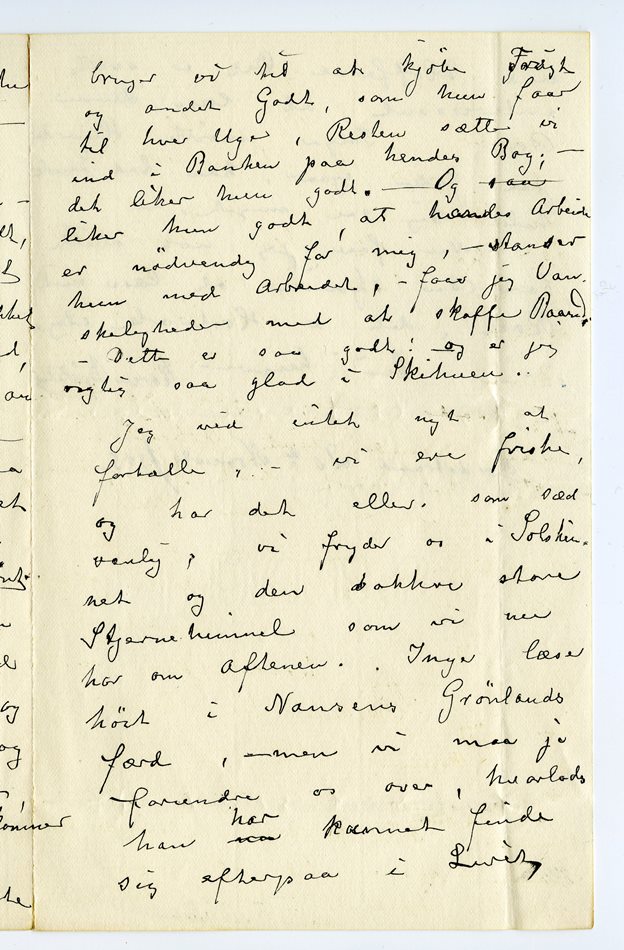 bruger vi til at kjöbe Frugt
og andet Godt, som hun faar
til hver Uge, Resten sætte vi
ind i Banken paa hendes Bog; —
det liker hun godt. — Og saa
liker hun godt, at hendes Arbeide
er nödvendig for mig, — standser
hun med Arbeidet, — faar jeg Van-
skeligheder med at skaffe Baand.
— Dette er saa godt! — og er jeg
rigtig saa glad i
Jeg ved intet nyt at
fortælle, — vi ere friske,
og har det eller. som sæd
vanlig; vi fryder os i Solskin-
net og den vakkre store
Stjernehimmel som vi nu
har om Aftenen. . Inga læser
höit i Nansens Grönlands
færd, — men vi maa jo
forundre os over, hvorledes
han har kunnet finde
sig efterpaa i Livet,